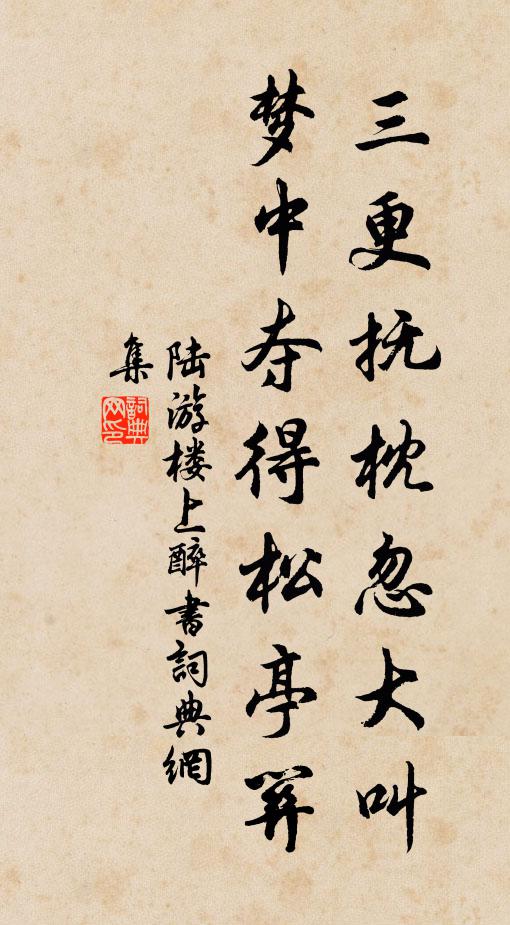 三更抚枕忽大叫
梦中夺得松亭关
陆游楼上醉书词典網
集
詞典
网印